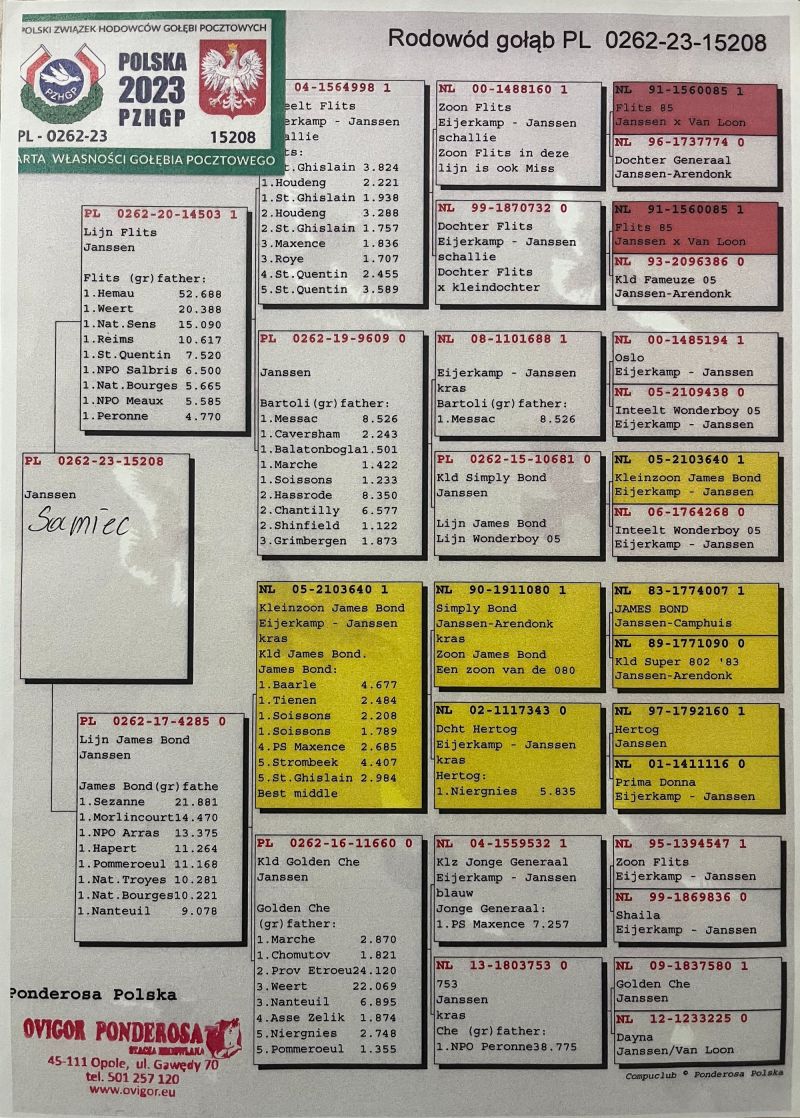 POLSKI ZWIĄZEK HODOWCÓW GOŁĘBI POCZTOWYCH
PZHGP
POLSKA
2023
PZHGP
PL - 0262-23
15208
ARTA WŁASNOŚCI GOŁĘBIA POCZTOWEGO
Rodowód gołąb PL 0262-23-15208
PL 0262-23-15208
Janssen
Samiec
PL 0262-20-14503 1
Lijn Flits
Janssen
Flits (gr)father:
1.Hemau 52.688
1.Weert 20.388
1.Nat.Sens 15.090
1.Reims 10.617
1.St.Quentin 7.520
1.NPO Salbris 6.500
1.Nat.Bourges 5.665
1.NPO Meaux 5.585
1.Peronne 4.770
PL 0262-17-4285 0
Lijn James Bond
Janssen
James Bond(gr)fathe
1.Sezanne 21.881
1.Morlincourt14.470
1.NPO Arras 13.375
1.Hapert 11.264
1.Pommeroeul 11.168
1.Nat.Troyes 10.281
1.Nat.Bourges10.221
1.Nanteuil 9.078
04-1564998 1
eelt Flits
erkamp - Janssen
allie
ts:
t.Ghislain 3.824
1.Houdeng 2.221
1.St.Ghislain 1.938
2.Houdeng 3.288
2.St.Ghislain 1.757
3.Maxence 1.836
3.Roye 1.707
4.St.Quentin 2.455
5.St.Quentin 3.589
PL 0262-19-9609 0
Janssen
Bartoli(gr)father:
1.Messac 8.526
1.Caversham 2.243
1.Balatonbogla1.501
1.Marche 1.422
1.Soissons 1.233
2.Hassrode 8.350
2.Chantilly 6.577
2.Shinfield 1.122
3.Grimbergen 1.873
NL 05-2103640 1
Kleinzoon James Bond
Eijerkamp - Janssen
kras
Kld James Bond.
James Bond:
1.Baarle 4.677
1.Tienen 2.484
1.Soissons 2.208
1.Soissons 1.789
4.PS Maxence 2.685
5.Strombeek 4.407
5.St.Ghislain 2.984
Best middle
PL 0262-16-11660 0
Kld Golden Che
Janssen
Golden Che
(gr)father:
1.Marche 2.870
1.Chomutov 1.821
2.Prov Etroeu24.120
3.Weert 22.069
3.Nanteuil 6.895
4.Asse Zelik 1.874
5.Niergnies 2.748
5.Pommeroeul 1.355
NL 00-1488160 1
Zoon Flits
Eijerkamp - Janssen
schallie
Zoon Flits in deze
lijn is ook Miss
NL 99-1870732 0
Dochter Flits
Eijerkamp - Janssen
schallie
Dochter Flits
x kleindochter
NL 08-1101688 1
Eijerkamp - Janssen
kras
Bartoli(gr)father:
1.Messac 8.526
PL 0262-15-10681 0
Kld Simply Bond
Janssen
Lijn James Bond
Lijn Wonderboy 05
NL 90-1911080 1
Simply Bond
Janssen-Arendonk
kras
Zoon James Bond
Een zoon van de 080
NL 02-1117343 0
Dcht Hertog
Eijerkamp - Janssen
kras
Hertog:
1.Niergnies 5.835
NL 04-1559532 1
Klz Jonge Generaal
Eijerkamp - Janssen
blauw
Jonge Generaal:
1.PS Maxence 7.257
NL 13-1803753 0
753
Janssen
kras
Che (gr)father:
1.NPO Peronne38.775
NL 91-1560085 1
Flits 85
Janssen x Van Loon
NL 96-1737774 0
Dochter Generaal
Janssen-Arendonk
NL 91-1560085 1
Flits 85
Janssen x Van Loon
NL 93-2096386 0
Kld Fameuze 05
Janssen-Arendonk
NL 00-1485194 1
Oslo
Eijerkamp - Janssen
NL 05-2109438 0
Inteelt Wonderboy 05
Eijerkamp - Janssen
NL 05-2103640 1
Kleinzoon James Bond
Eijerkamp - Janssen
NL 06-1764268 0
Inteelt Wonderboy 05
Eijerkamp - Janssen
NL 83-1774007 1
JAMES BOND
Janssen-Camphuis
NL 89-1771090 0
Kld Super 802 '83
Janssen-Arendonk
NL 97-1792160 1
Hertog
Janssen
NL 01-1411116 0
Prima Donna
Eijerkamp - Janssen
NL 95-1394547 1
Zoon Flits
Eijerkamp - Janssen
NL 99-1869836 0
Shaila
Eijerkamp - Janssen
NL 09-1837580 1
Golden Che
Janssen
NL 12-1233225 0
Dayna
Janssen/Van Loon
Ponderosa Polska
OVIGOR PONDEROSA
STACJA HODOWLANA
45-111 Opole, ul. Gawędy 70
tel. 501 257 120
www.ovigor.eu
Compuclub © Ponderosa Polska